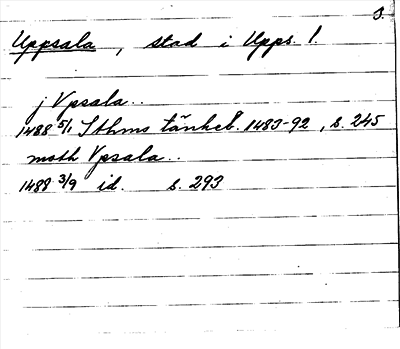 3.
Uppsala, stad i Upps. l.
j Vpsala..
1488 5/1 Sthms tänkeb. 1483-92, s. 245
moth Vpsala..
1488 3/9 id. s. 293